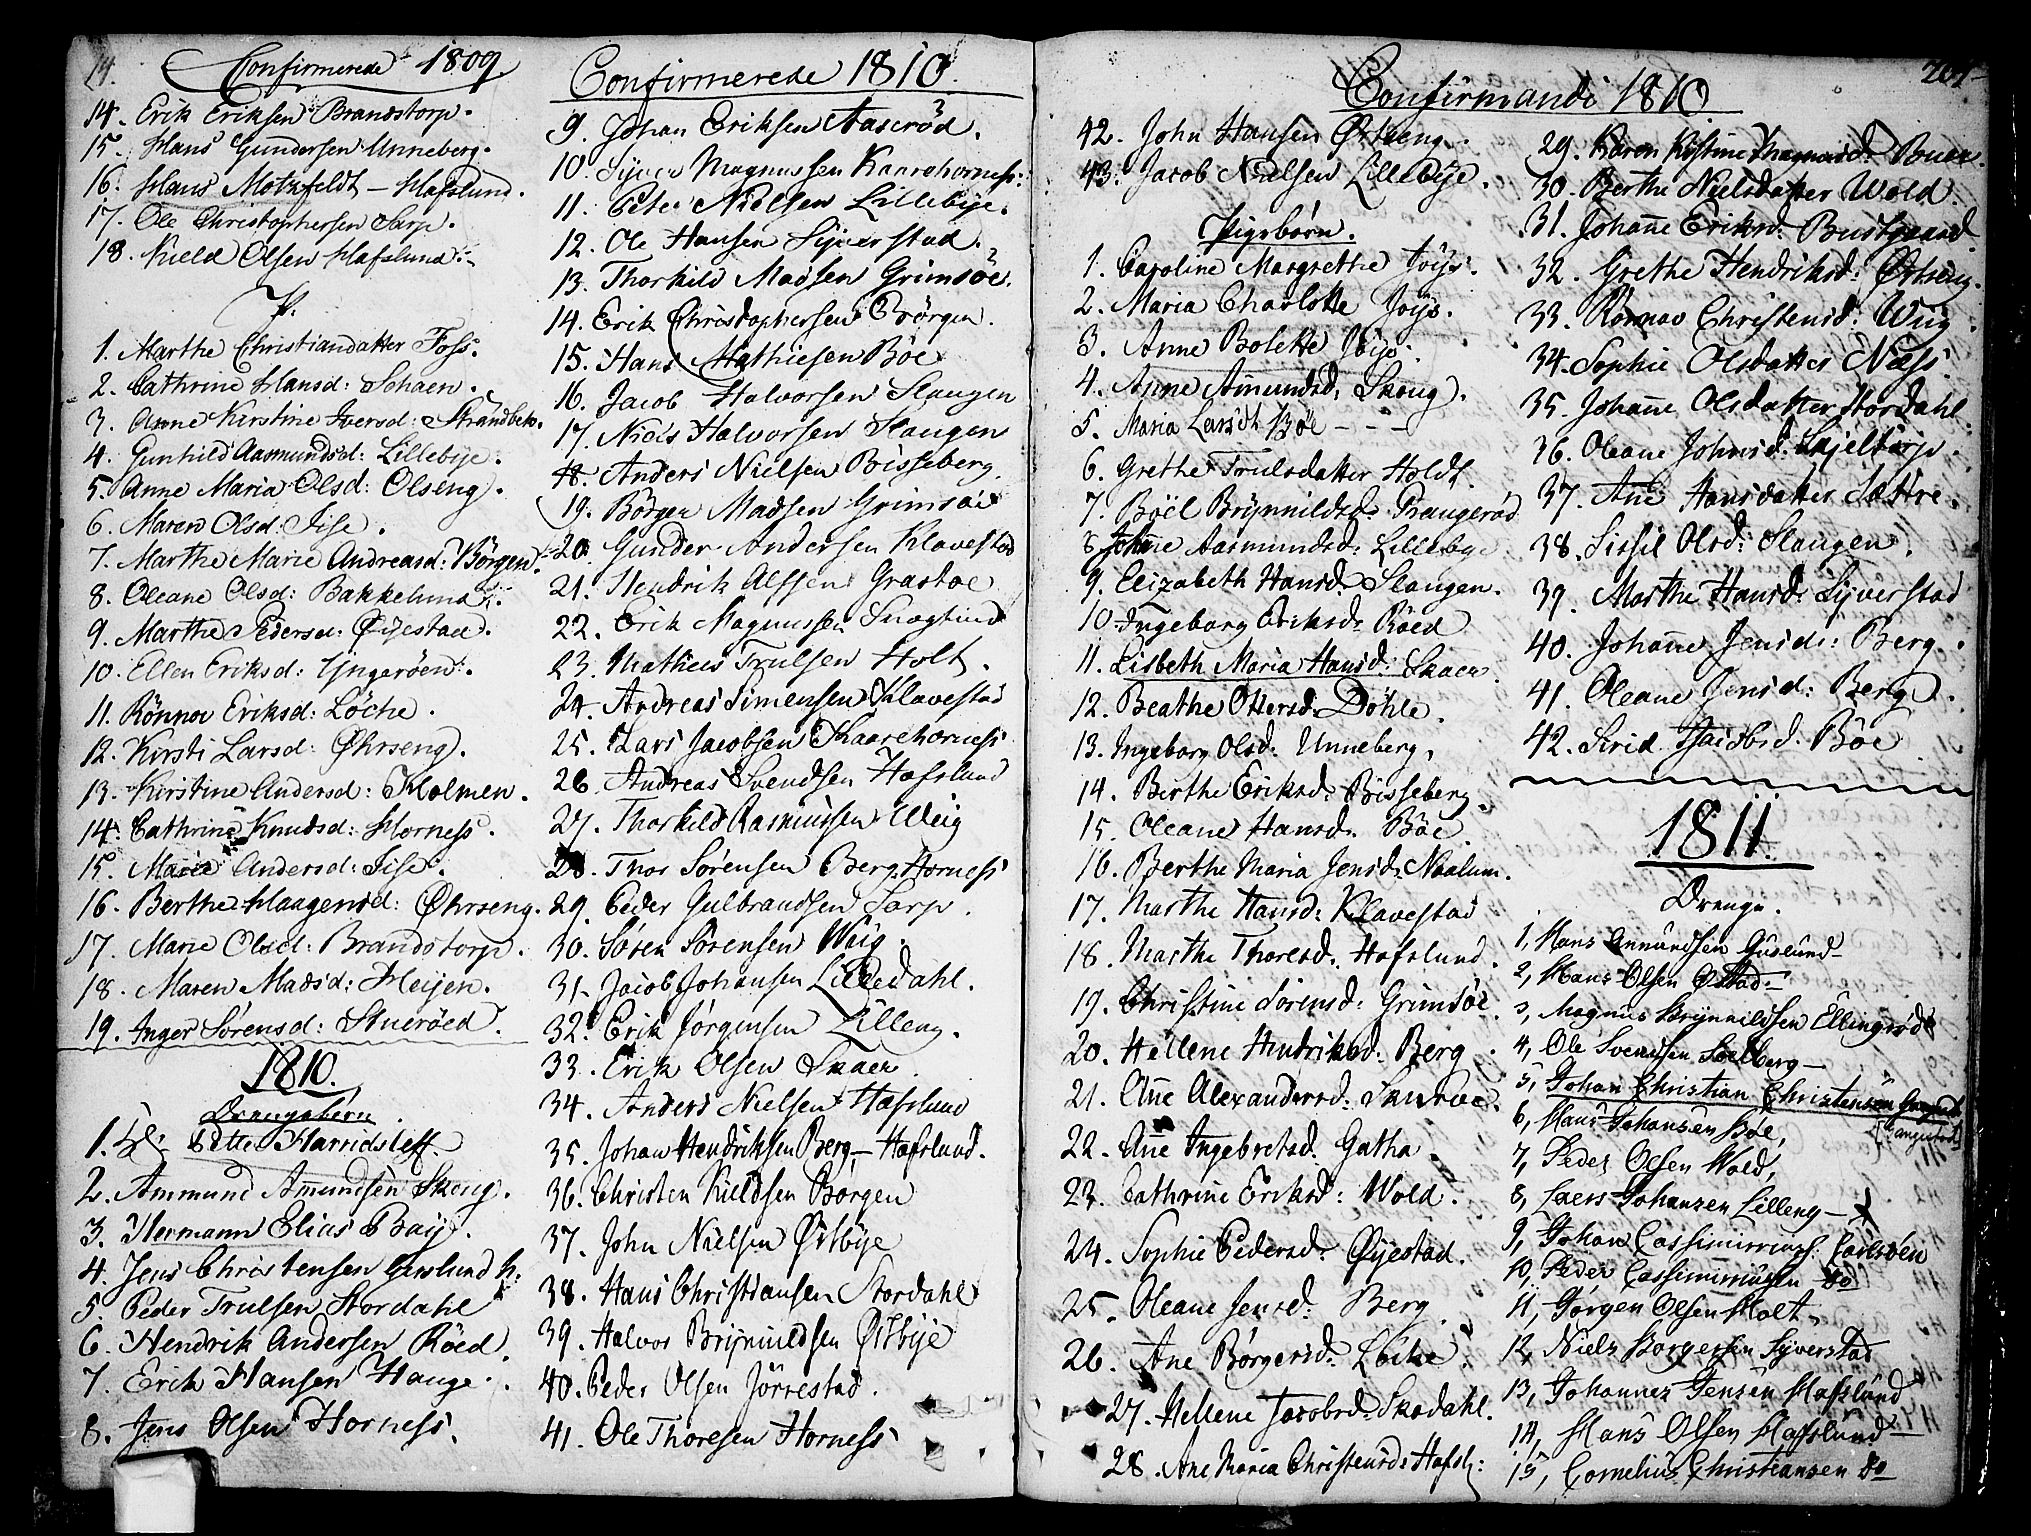 Confirmerede 1809
14. Erik Eriksen Brandstorp.
15. Hans Gundersen Unneberg.
16. Hans Motzfeldt – Hafslund.
17. Ole Christophersen Sarp.
18. Kield Olsen Hafslund.
P.
1. Marthe Christiandatter Foss.
2. Cathrine Hansd: Schaen.
3. Anne Kirstine Iversd: Strandbek.
4. Gunhild Aasmundsd: Lillebÿe.
5. Anne Maria Olsd: Olseng.
6. Maren Olsd: Tise.
7. Marthe Marie Andreasd: Börgen.
8. Oleane Olsd: Bakkehuus.
9. Marthe Pedersd: Öÿestad.
10. Ellen Eriksd: Yngeröen.
11. Rönnov Eriksd: Löche.
12. Kirsti Larsd: Öhrseng.
13. Kirstine Andersd: Holmen.
14. Cathrine Knudsd: Horness.
15. Marie Andersd: Tise.
16. Berthe Haagensd: Öhrseng.
17. Marie Olsd: Brandstorp.
18. Maren Madsd: Heÿen.
19. Inger Sörensd: Stueröed.
1810.
Drengebörn
1. Sr: Bette Harridsleff.
2. Ammund Amundsen Skoug.
3. Hermann Elias Baÿ.
4. Jens Christensen Guslund h:
5. Peder Trulsen Stordahl
6. Hendrik Andersen Röed.
7. Erik Hansen Hauge.
8. Jens Olsen Horness.
Confirmerede 1810.
9. Johan Eriksen Aaseröd.
10. Sÿver Magnussen Kaarehorness.
11. Peter Nielsen Lillebÿe.
12. Ole Hansen Sÿverstad.
13. Thorkild Madsen Grimsöe.
14. Erik Christophersen Börgen.
15. Hans Mathiesen Böe
16. Jacob Halvorsen Slangen
17. Niels Halvorsen Slangen
18. Anders Nielsen Bisseberg.
19. Börger Madsen Grimsöe
20. Gunder Andersen Klavestad
21. Hendrik Alfsen Grastoe
22. Erik Magnussen Snogtind
23. Mathias Trulsen Holt.
24. Andreas Simensen Klavestad
25. Lars Jacobsen Skaarehorness
26. Andreas Svendsen Hafslund
27. Thorkild Rasmussen Weig
28. Thor Sörensen Berg Horness
29. Peder Gulbrandsen Sarp.
30. Sören Sörensen Weig.
31. Jacob Johansen Lilledahl.
32. Erik Jörgensen Lilleng.
33. Erik Olsen Skaer.
34. Anders Nielsen Hafslund
35. Johan Hendriksen Berg – Hafslund.
36. Christen Kieldsen Börgen
37. John Nielsen Östbÿe
38. Hans Christiansen Stordahl
39. Halvor Brÿnnildsen Östbÿe
40. Peder Olsen Jörrestad.
41. Ole Thoresen Horness
Confirmandi 1810
42. John Hansen Örtseng.
43. Jacob Nielsen Lillebÿe.
Pigebörn.
1. Caroline Margrethe Joÿs.
2. Maria Charlotte Joÿs.
3. Anne Bolette Joÿs.
4. Anne Amundsd. Skoug.
5. Maria Larsdt Böe - - -
6. Grethe Trulsdatter Holdt.
7. Böel Brÿnnildsd: Prangeröd
8. Johne Aasmundsd: Lillebÿe
9. Elizabeth Hansd. Slangen.
10. Ingeborg Eriksd. Röed
11. Lisbeth Maria Hansd: Skaer.
12. Beathe Ottersd. Döhle.
13. Ingeborg Olsd. Unneberg.
14. Berthe Eriksd: Bisseberg.
15. Oleane Hansd. Böe
16. Berthe Maria Jensd: Naalum.
17. Marthe Hansd: Klavestad
18. Marthe Thoresd: Hafslund.
19. Christine Sörensd: Grimsöe.
20. Hellene Hendriksd: Berg.
21. Ane Alexandersd:
22. Ane Ingebretsd: Gatha.
23. Cathrine Eriksd: Wold.
24. Sophie Pedersd: Öÿestad.
25. Oleane Jensd: Berg.
26. Ane Börgersd: Löche.
27. Hellene Jacobsd: Skodahl.
28. Ane Maria Christensd: Hafsl:
29. Karen Kistine Magnusd: Buer.
30. Berthe Nielsdatter Wold.
31. Johane Eriksd: Bustgaard.
32. Grethe Hendriksd: Örtseng.
33. Rönnov Christensd: Wiig.
34. Sophie Olsdatter Næss.
35. Johane Olsdatter Stordahl.
36. Oleane Johnsd: Skjeltorp.
37. Ane Hansdatter Sæstre.
38. Sissil Olsd: Slangen.
39. Marthe Hansd: Sÿverstad
40. Johane Jensd: Berg.
41. Oleane Jensd: Berg.
42. Sirid Jacobsd. Böe
1811.
Drenge.
1, Hans Amundsen Guslund –
2, Hans Olsen Östad –
3, Magnus Brÿnnildsen Ellingröd
4, Ole Svendsen Soelberg –
5, Johan Christian Christensen
6, Hans Johansen Böe,
7, Peder Olsen Wold,
8, Laers Johansen Lilleng –
9, Johan Cassimirrius: Carlsöen
10, Peder Cassimirrusen do
11, Jörgen Olsen Holt,
12, Niels Borgersen Sÿverstad
13, Johannes Jensen Hafslund
14, Hans Olsen Hafslund –
15, Cornelius Christiansen do